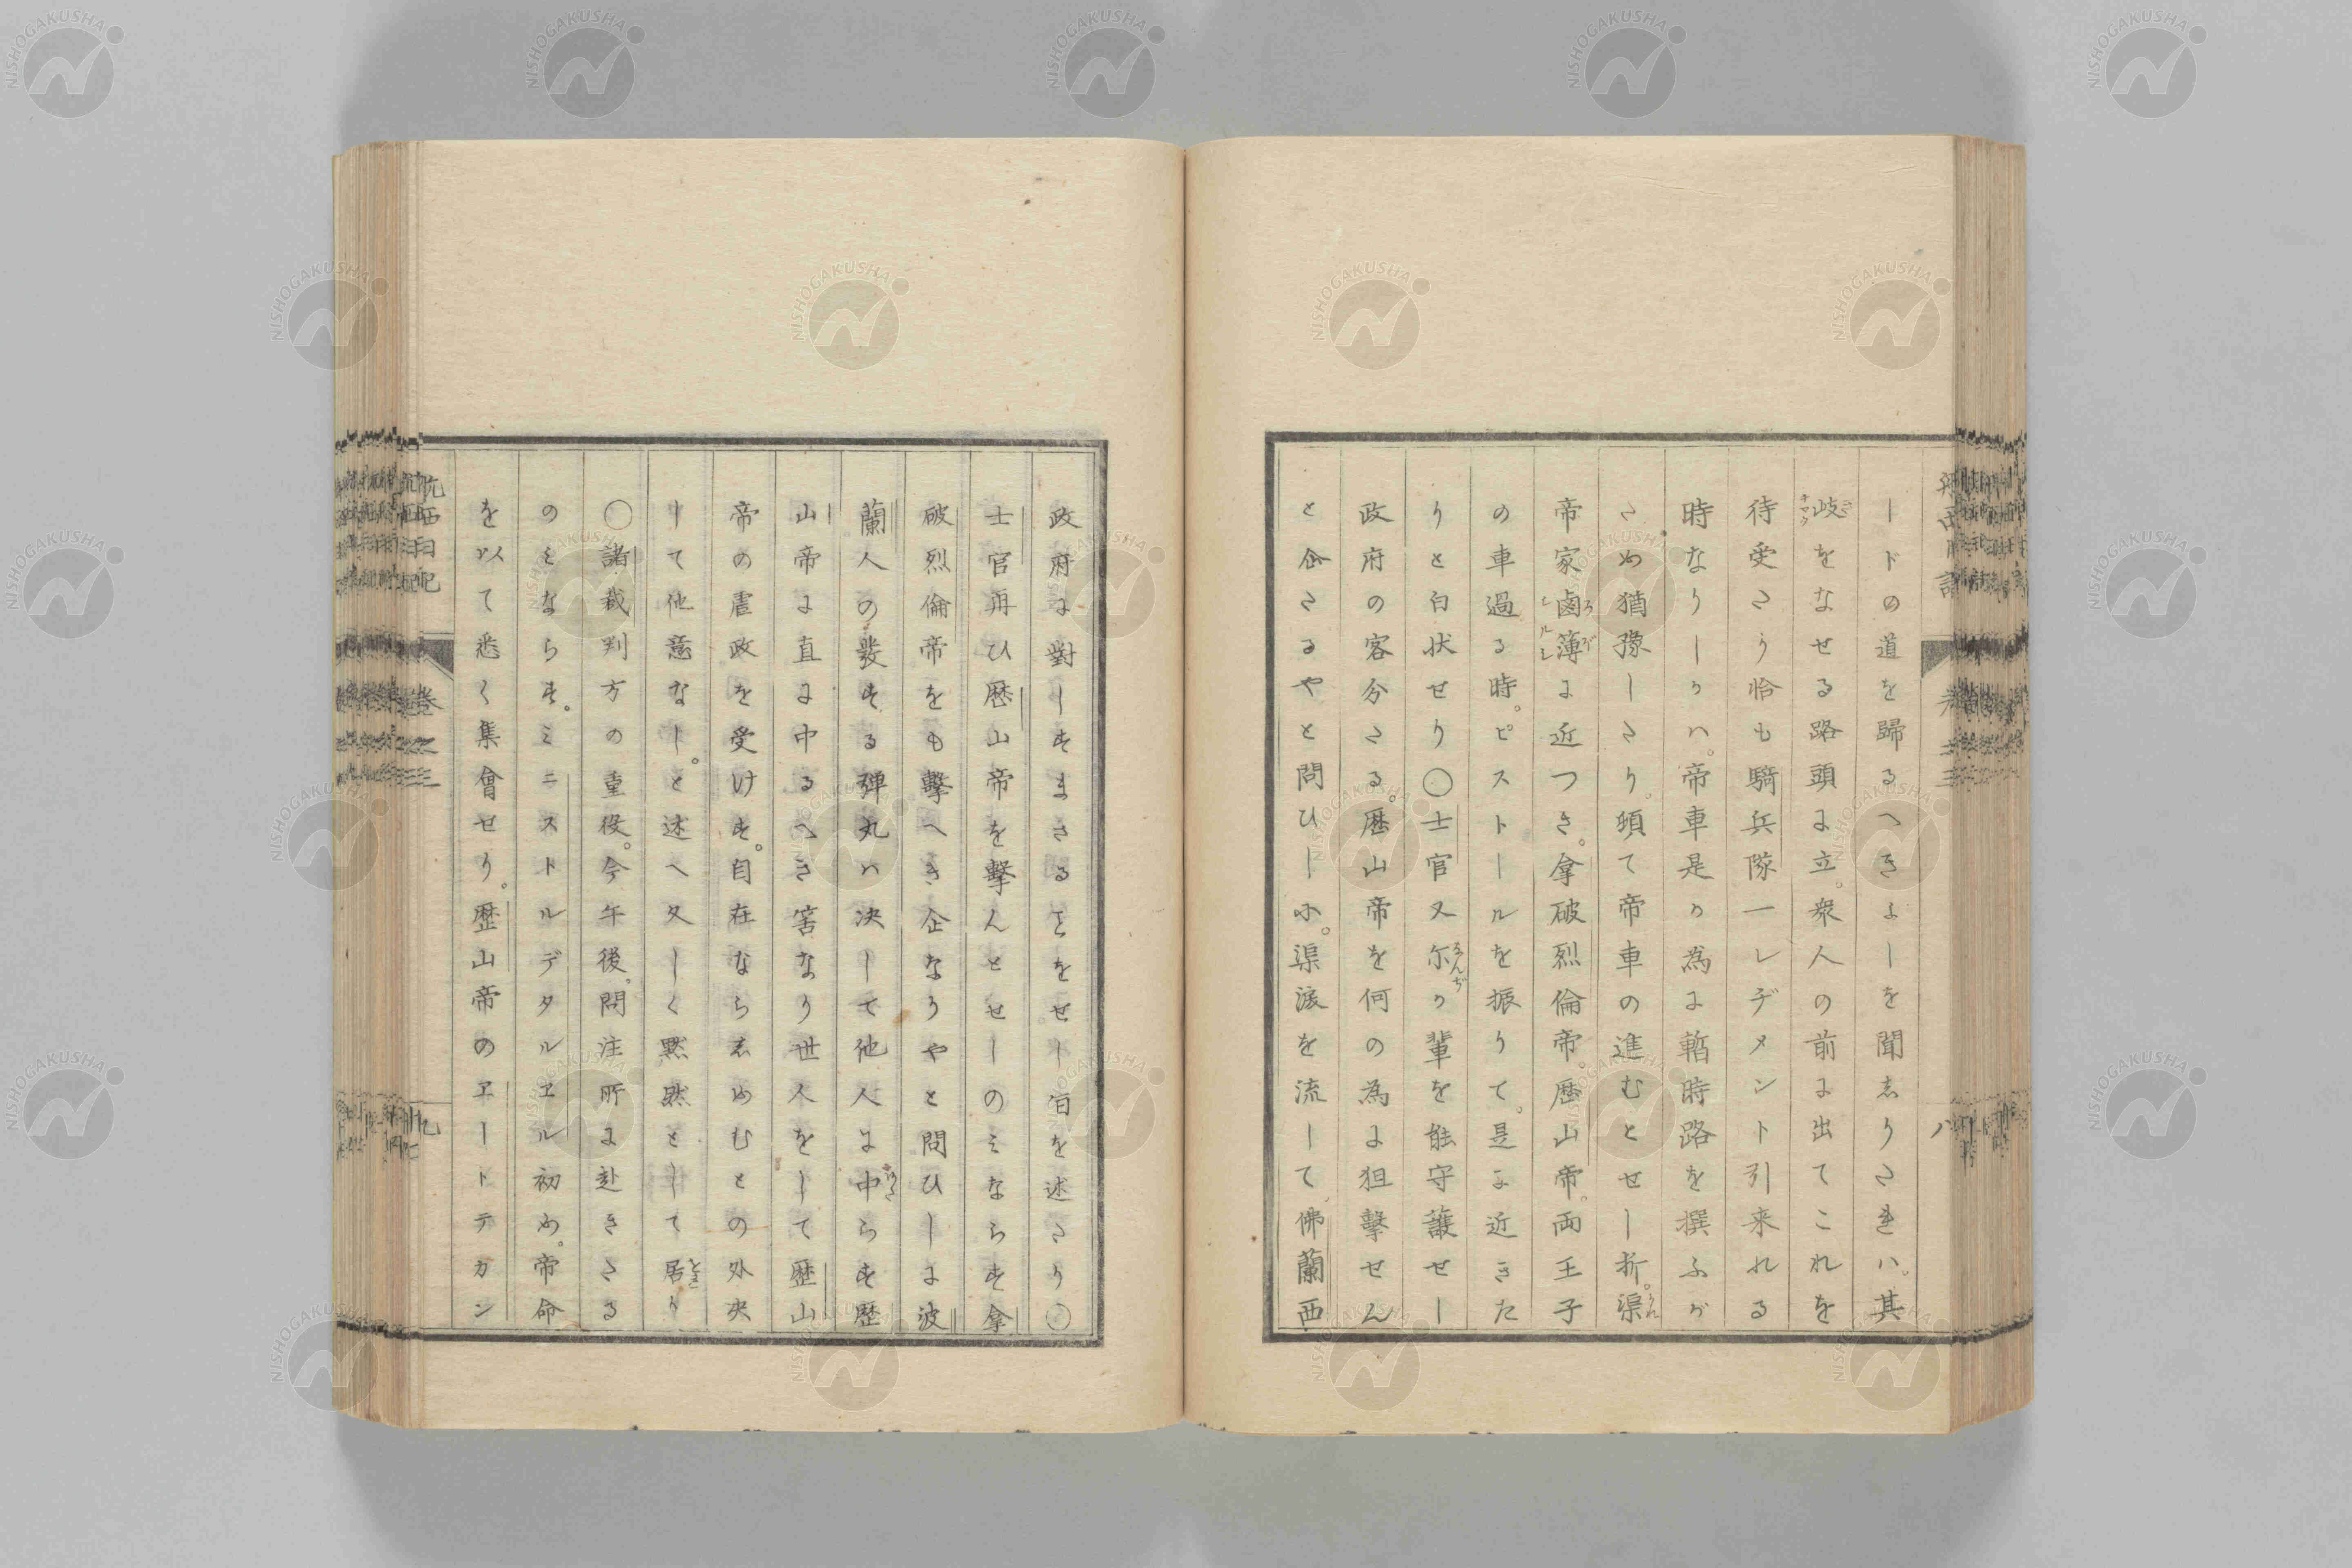 ードの道を歸るへきよーを聞志りされハ。其
岐をなせる路頭よ立。衆人の前よ出てこれを
待受さり恰も騎兵隊一レヂメント引来れる
時なりーかハ。帝車是か為よ暫時路を撰ふが
さめ猶豫ーさり。頓て帝車の進むとせー折。渠
帝家鹵簿よ近つき。拿破烈倫帝。歴山帝。両王子
の車過る時。ピストールを振りて。是よ近きた
りと白状せり〇士官又尓か輩を能守護せー
政府の客分さる。歴山帝を何の為よ狙擊せん
と企さるやと問ひー小。渠涙を流ーて佛蘭西
政府よ對ーすまさることをせー旨を述さり〇
士官再ひ歴山帝を擊んとせーのミならす拿
破烈倫帝をも擊へき企なりやと問ひーよ波
蘭人の發する弾丸ハ決ーて他人よ中らす歴
山帝よ直よ中るへき筈なり世人をーて歴山
帝の虐政を受けす。自在なら志めむとの外決
ーて他意なー。と述へ久ーく黙然とーて居り
〇諸裁判方の重役。今午後。問注所よ赴きさる
のミならす。ミニストルデタルエル初め。帝命
を以て悉く集會せり。歴山帝のヱートテカン
航西日記 卷之三 九
NISHOGAKUSHA